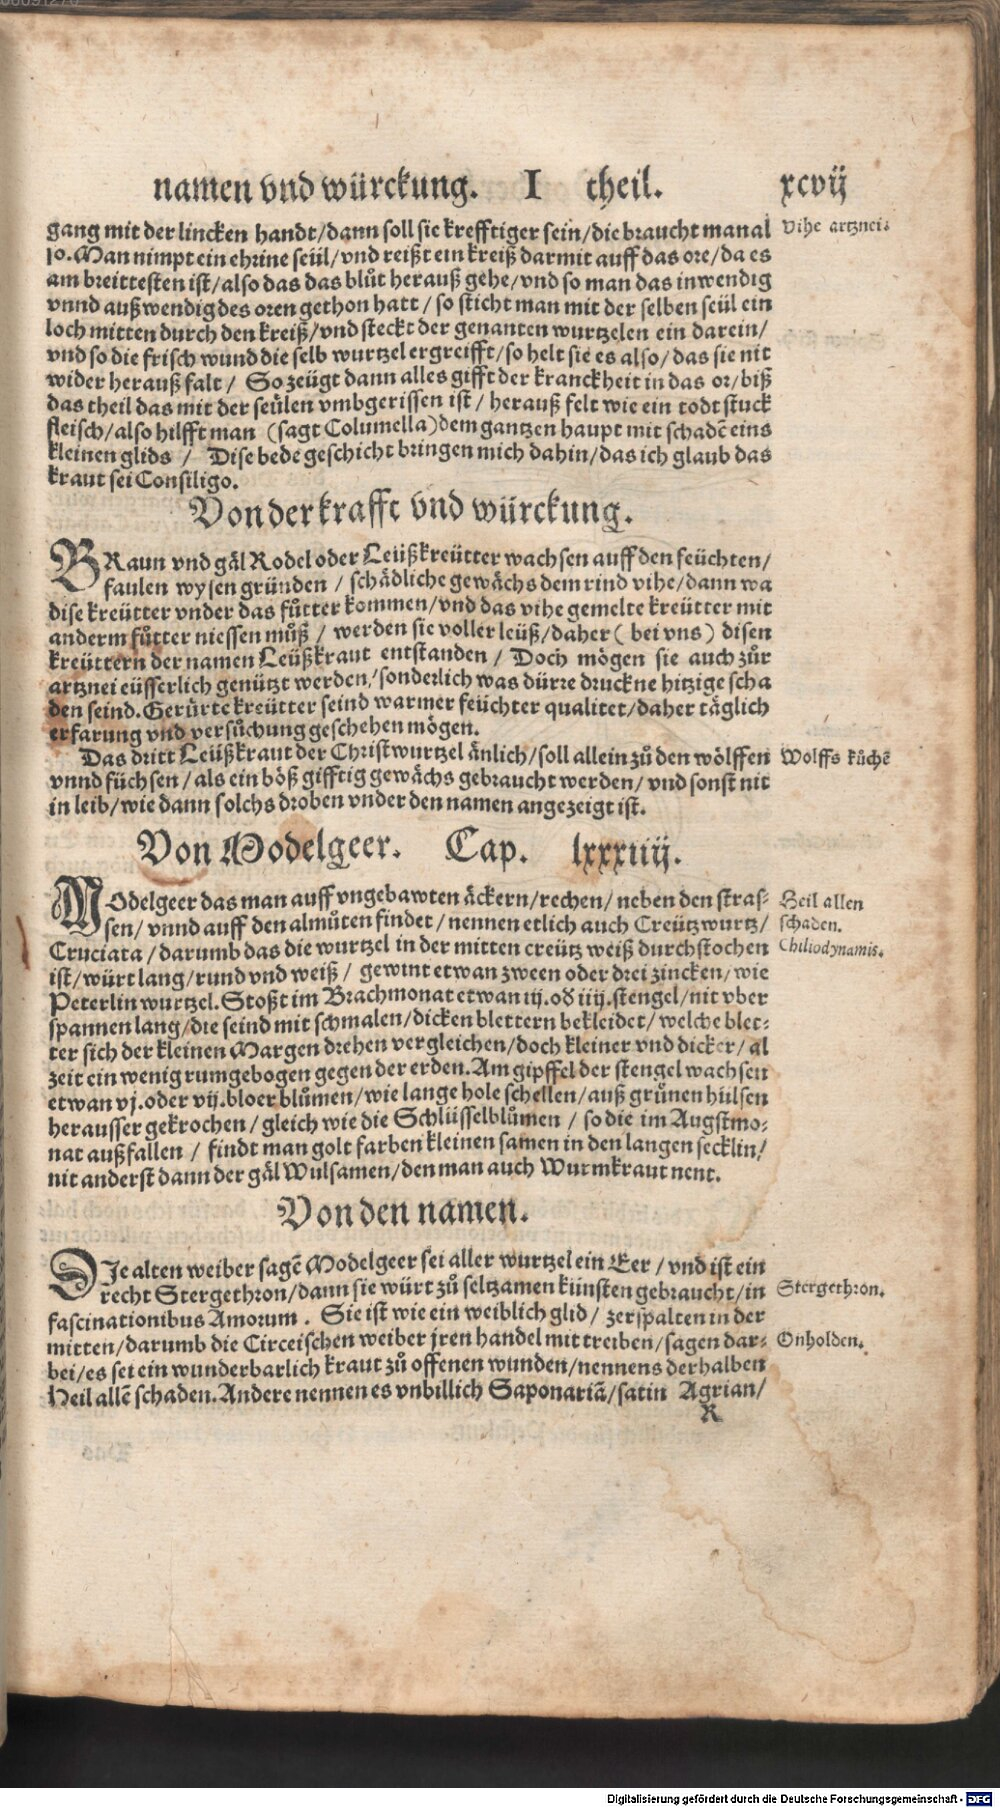 namen vnd würckung. I theil. xcvij
gang mit der lincken handt/dann soll sie krefftiger sein/die braucht man al
so. Man nimpt ein ehrine seül/vnd reißt ein kreiß darmit auff das ore/da es
am breittesten ist/also das das blůt herauß gehe/vnd so man das inwendig
vnnd außwendig des oren gethon hatt/so sticht man mit der selben seül ein
loch mitten durch den kreiß/vnd steckt der genanten wurtzelen ein darein/
vnd so die frisch wund die selb wurtzel ergreifft/so helt sie es also/das sie nit
wider herauß falt/ So zeügt dann alles gifft der kranckheit in das or/biß
das theil das mit der seülen vmbgerissen ist/herauß felt wie ein todt stuck
fleisch/also hilfft man (sagt Columella) dem gantzen haupt mit schadē eins
kleinen glids/ Dise bede geschicht bringen mich dahin/das ich glaub das
kraut sei Consiligo.
vihe artznei.
Von der krafft vnd würckung.
BRaun vnd gäl Rodel oder Leüßkreütter wachsen auff den feüchten/
faulen wysen gründen/schädliche gewächs dem rind vihe/dann wa
dise kreütter vnder das fůtter kommen/vnd das vihe gemelte kreütter mit
anderm fůtter niessen můß/werden sie voller leüß/daher (bei vns) disen
kreüttern der namen Leüßkraut entstanden/Doch mögen sie auch zůr
artznei eüsserlich genützt werden/sonderlich was dürre druckne hitzige scha
den seind. Gerürte kreütter seind warmer feüchter qualitet/daher täglich
erfarung vnd versůchung geschehen mögen.
Das dritt Leüßkraut der Christwurtzel änlich/soll allein zů den wölffen
vnnd füchsen/als ein böß gifftig gewächs gebraucht werden/vnd sonst nit
in leib/wie dann solchs droben vnder den namen angezeigt ist.
Wolffs kůchē
Von Modelgeer. Cap. lxxxiiij.
MOdelgeer das man auff vngebawten äckern/rechen/neben den stras-
sen/vnnd auff den almůten findet/nennen etlich auch Creützwurtz/
Cruciata/darumb das die wurtzel in der mitten creütz weiß durchstochen
ist/würt lang/rund vnd weiß/gewint etwan zween oder drei zincken/wie
Peterlin wurtzel. Stoßt im Brachmonat etwan iij. od iiij. stengel/nit vber
spannen lang/die seind mit schmalen/dicken blettern bekleidet/welche blet-
ter sich der kleinen Margen drehen vergleichen/doch kleiner vnd dicker/al
zeit ein wenig rumgebogen gegen der erden. Am gipffel der stengel wachsen
etwan vj. oder vij. bloer blůmen/wie lange hole schellen/auß grůnen hülsen
herausser gekrochen/gleich wie die Schlüsselblůmen/so die im Augstmo-
nat außfallen/findt man golt farben kleinen samen in den langen secklin/
nit anderst dann der gäl Wulsamen/den man auch Wurmkraut nent.
Heil allen
schaden.
Chiliodynamis.
Von den namen.
DIe alten weiber sagē Modelgeer sei aller wurtzel ein Eer/vnd ist ein
recht Stergethron/dann sie würt zů seltzamen künsten gebraucht/in
fascinationibus Amorum. Sie ist wie ein weiblich glid/zerspalten in der
mitten/darumb die Circeischen weiber jren handel mit treiben/sagen dar-
bei/es sei ein wunderbarlich kraut zů offenen wunden/nennens derhalben
Heil allē schaden. Andere nennen es vnbillich Saponariā/satin Agrian/
Stergethron.
Onholden.
R
Digitalisierung gefördert durch die Deutsche Forschungsgemeinschaft - DFG